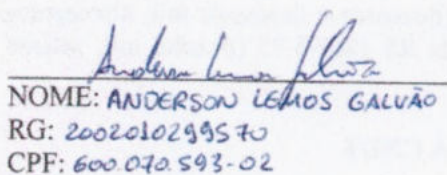 NOME: ANDERSON LEMOS GALVÃO
RG: 2002010299570
CPF: 600.070.593-02